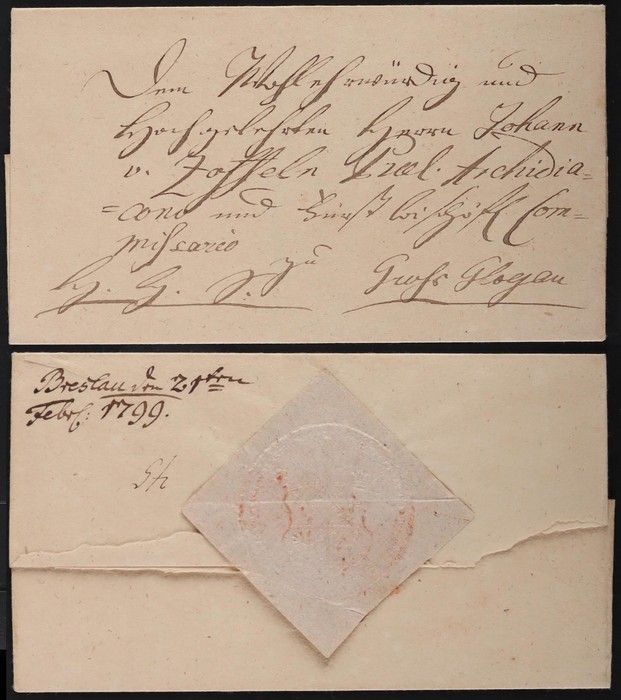 Dem Wohlehrwürdig und
Hochgelehrten Herrn Johann
v. Zoffeln Præl. Archidia=
=cono und Fürst bischöfl Com=
missario
zu
H. H. Gross Glogau
Breslau den 21ten
Febr: 1799.